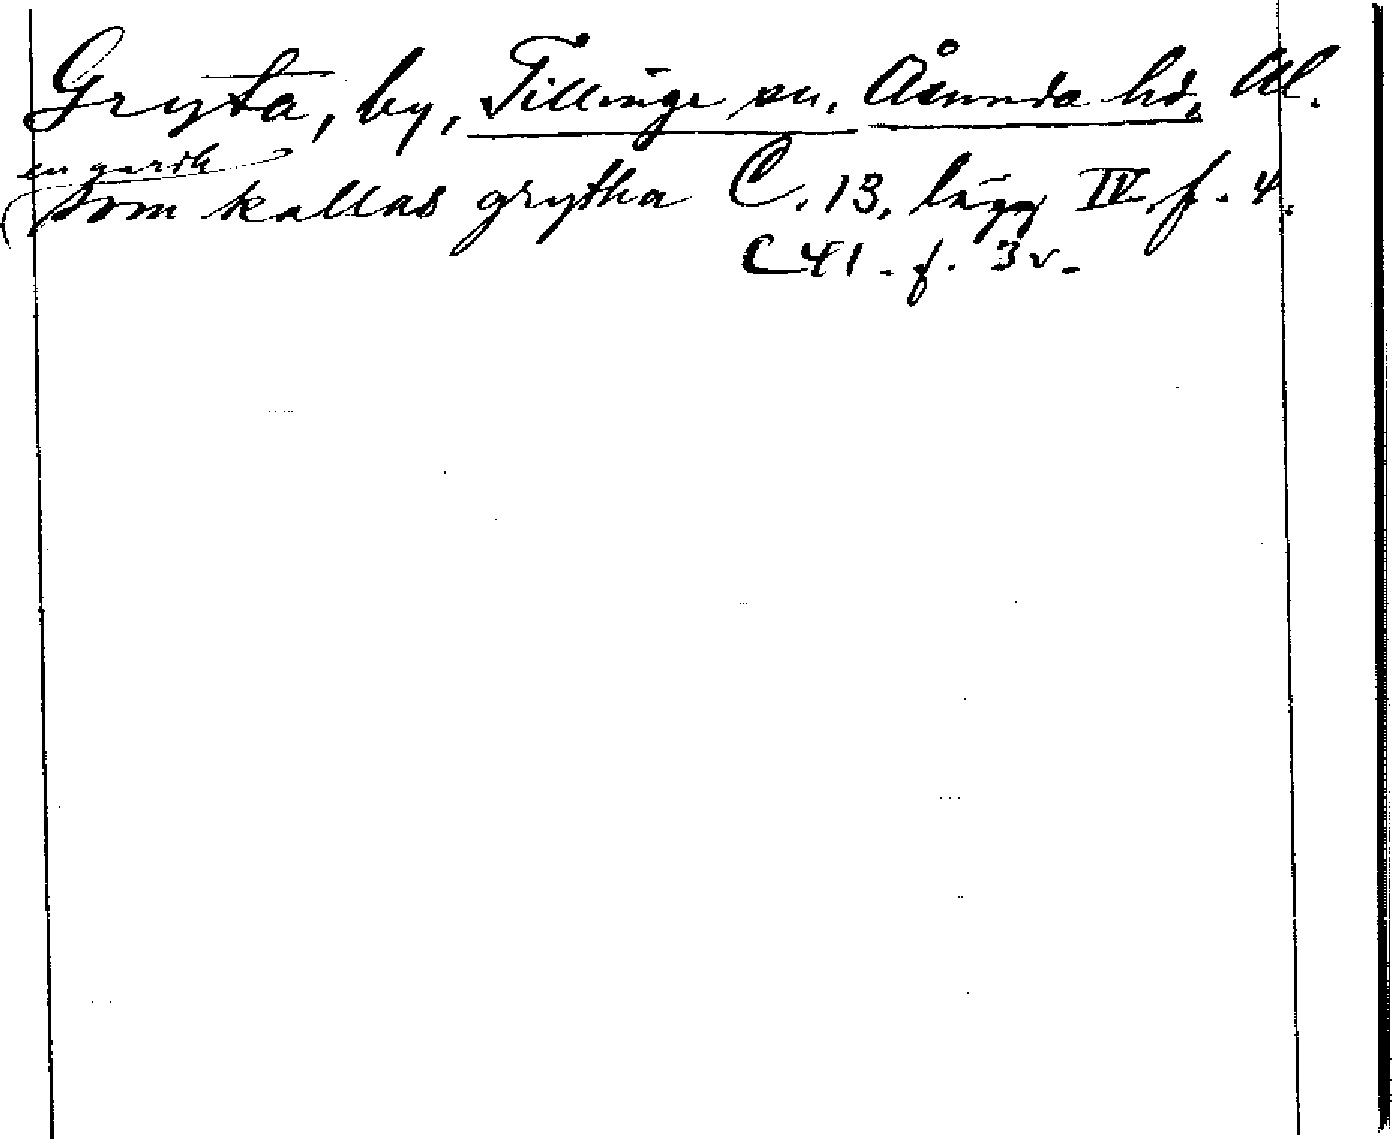 Gryta, by, Tillinge sn. Åsunda hd, Ul.
en gardh
som kallas grytha C. 13, lägg IV f. 4.
C 41. f. 3 v.